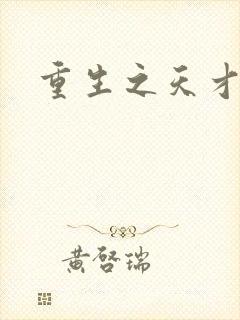 重生之天才
黄啓瑞